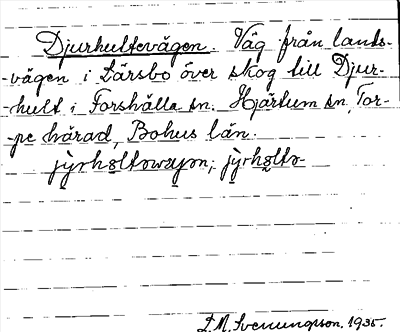 Djurhultevägen. Väg från lands-
-vägen i Lärsbo över skog till Djur-
-hult i Forshälla sn. Hjärtum sn, Tor-
-pe härad, Bohus län.
jy̌rho̤ltəvæjən, jy̌rho̤ltə-
L. M. Svenungsson. 1935.